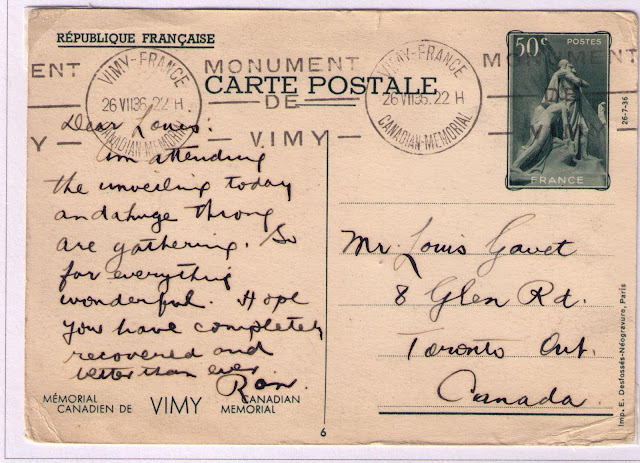 RÉPUBLIQUE FRANÇAISE
CARTE POSTALE
50c POSTES
FRANCE
26-7-36
ENT
Y
VIMY-FRANCE
26 VII36. 22 H
CANADIAN-MEMORIAL
MONUMENT
DE
VIMY
VIMY-FRANCE
26 VII36. 22 H
CANADIAN-MEMORIAL
MONUMENT
DE
VIMY
Dear Louis:
Im attending
the unveiling today
and a huge throng
are gathering. So
far everything
wonderful. Hope
you have completely
recovered and
better than ever
Ron.
Mr. Louis Gavet
8 Glen Rd.
Toronto Ont.
Canada.
MÉMORIAL
CANADIEN DE VIMY CANADIAN
MEMORIAL
6
Imp. E. Desfossés-Néogravure, Paris